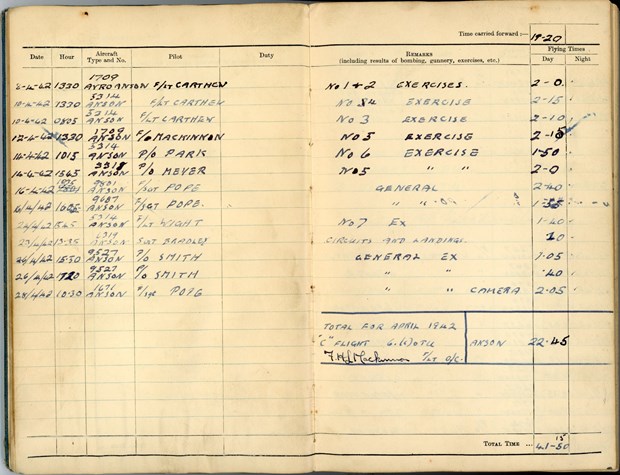 Time carried forward :— 19-20
Date Hour Aircraft Type and No. Pilot Duty REMARKS (including results of bombing, gunnery, exercises, etc.) Flying Times Day Night
1709
1330 AVRO ANSON F/LT CARTHEW No 1+2 EXERCISES. 2-0
5314
1330 ANSON F/LT CARTHEW No 4 EXERCISE 2-15
5314
0805 ANSON F/LT CARTHEW No 3 EXERCISE 2-10
1709
12-4-42 1330 ANSON F/O MACKINNON No 5 EXERCISE 2-15
5314
14-4-42 1015 ANSON P/O PARK No 6 EXERCISE 1-50
14-4-42 1545 ANSON P/O MEYER No 5 " " 2-0
16-4-42 ANSON F/SGT POPE GENERAL 2-40
9687
ANSON F/SGT POPE. " "
5314
ANSON F/LT WIGHT No 7 EX 1-40
ANSON SGT BRADLEY CIRCUITS AND LANDINGS.
9527
26/4/42 1530 ANSON P/O SMITH GENERAL EX 1-05
9527
26/4/42 ANSON P/O SMITH " " ·40
1671
28/4/42 10.30 ANSON F/SGT POPE " " CAMERA 2-05
TOTAL FOR APRIL 1942
"C" FLIGHT 6.(c) OTU ANSON 22-45
F.H. Mackinnon F/LT O/C.
TOTAL TIME ... 41-50
15